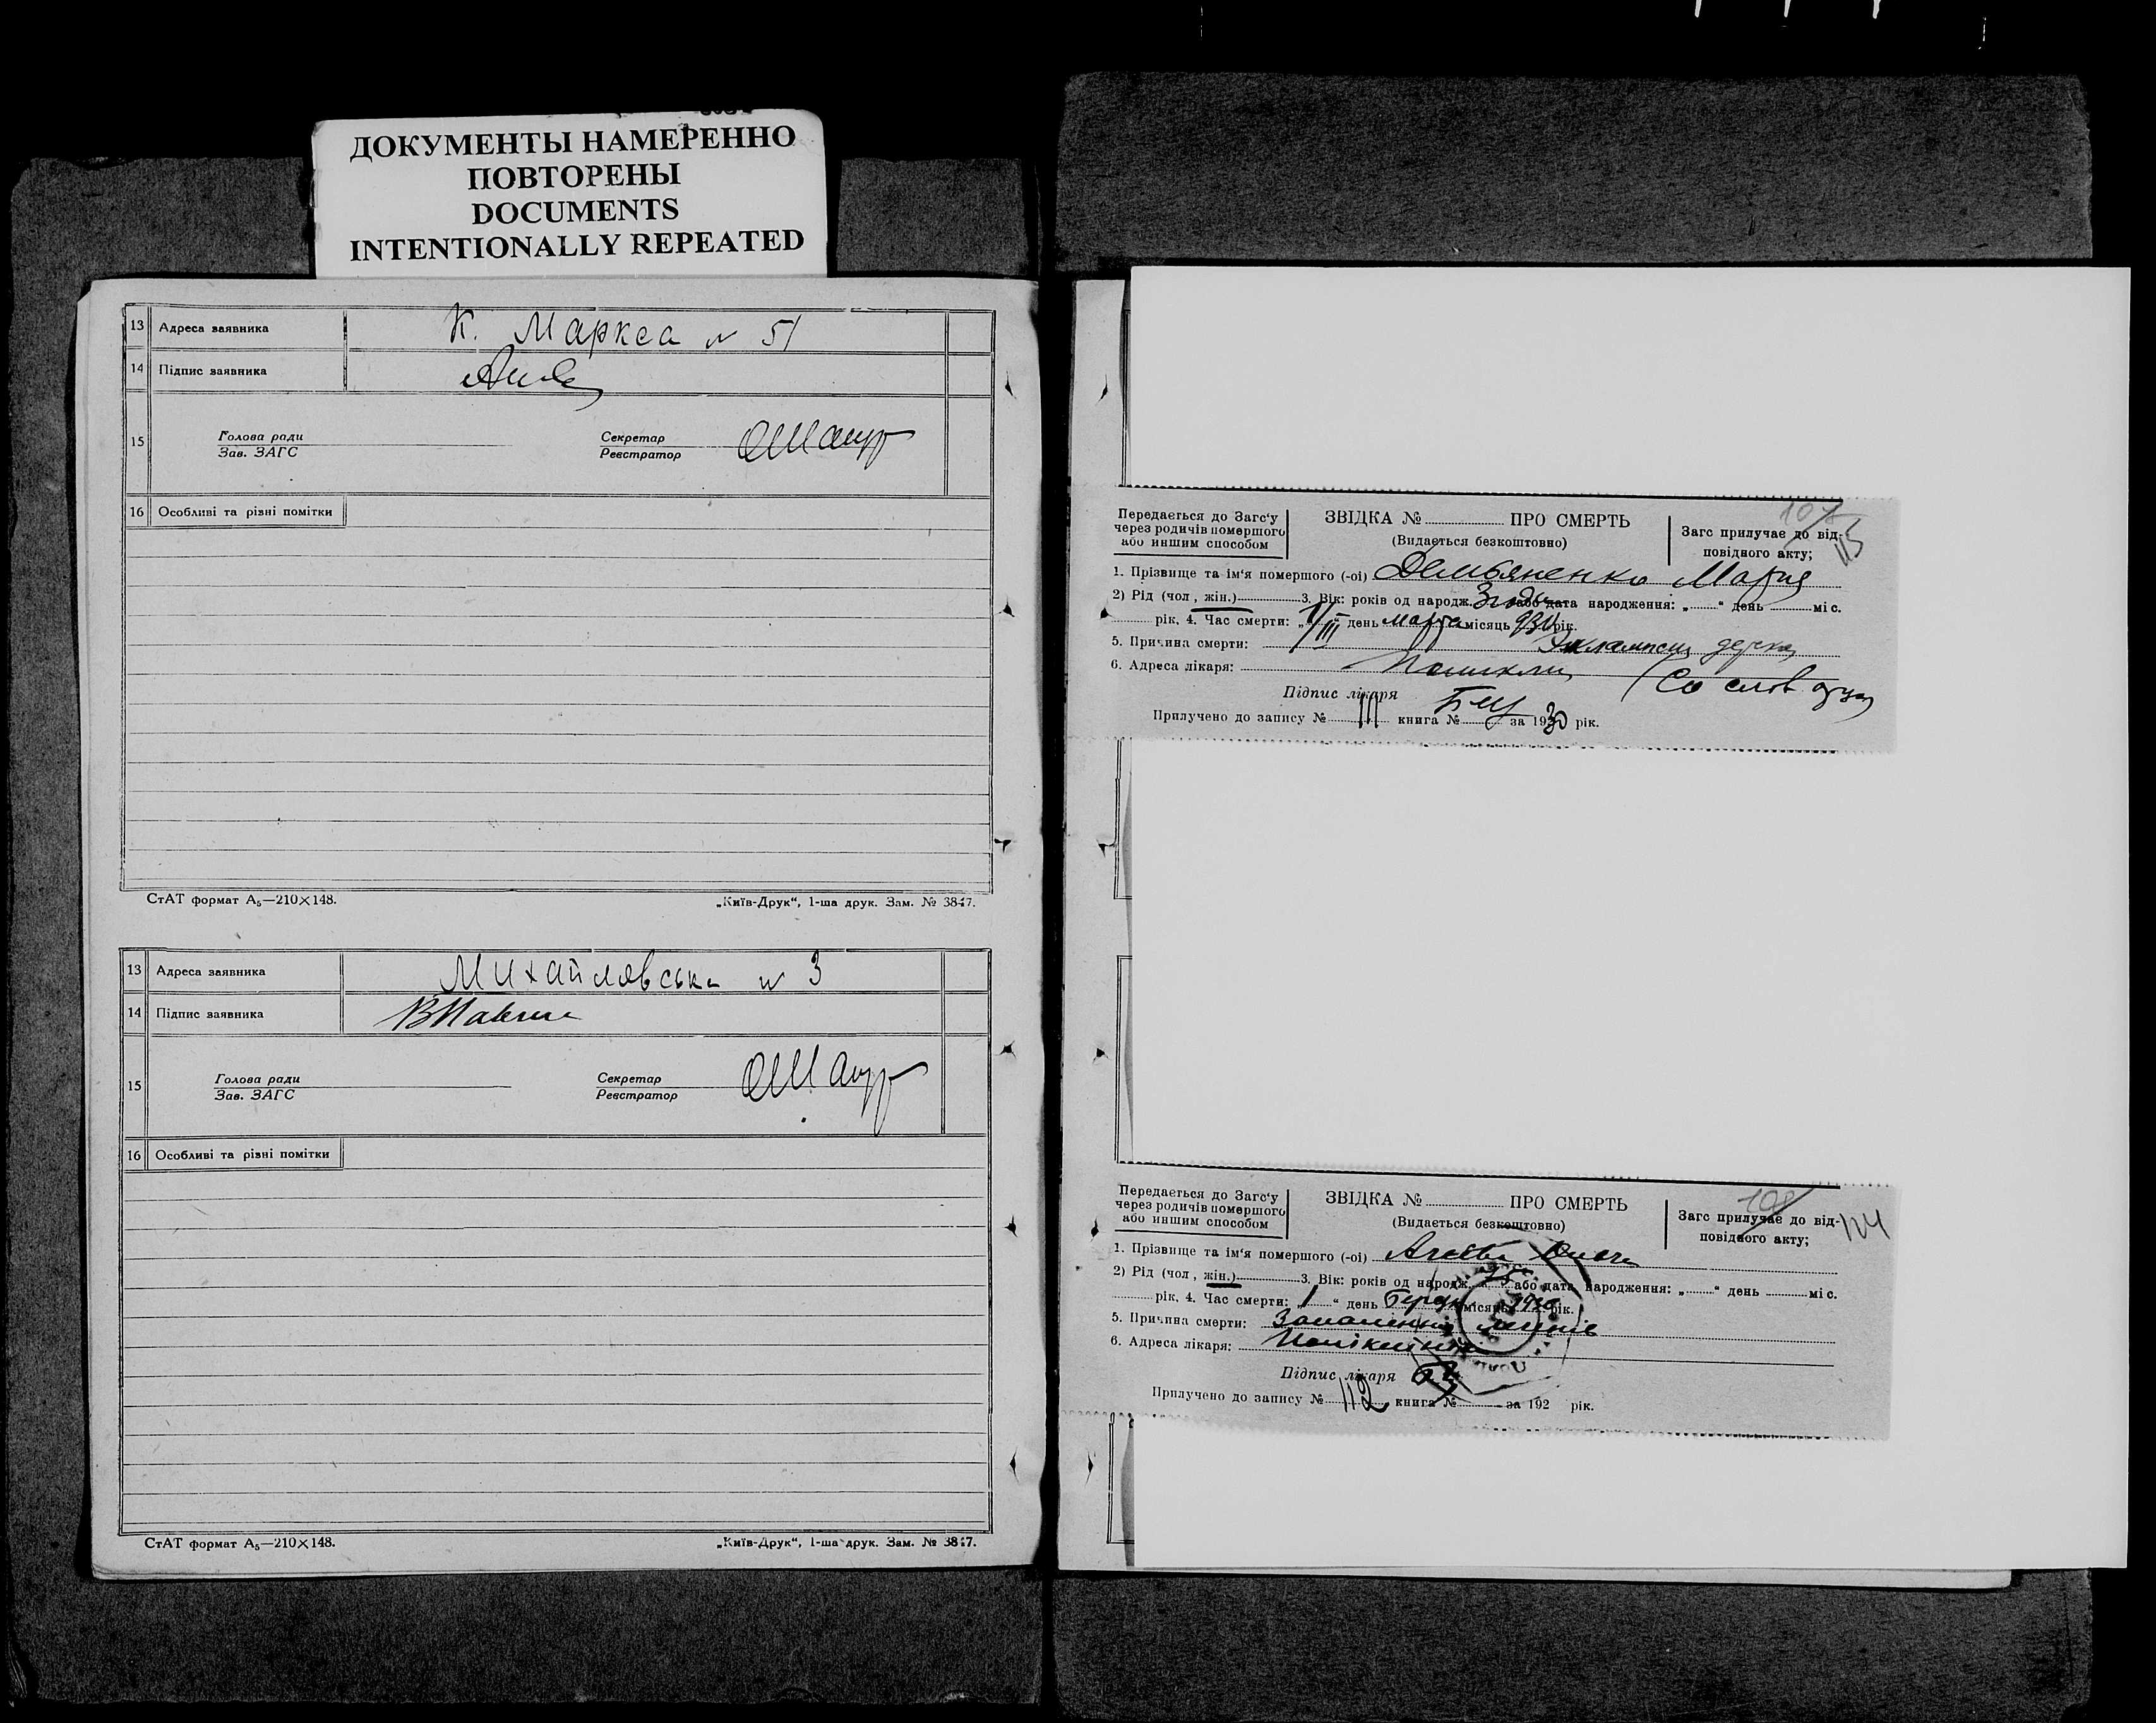 ДОКУМЕНТЫ НАМЕРЕННО
ПОВТОРЕНЫ
DOCUMENTS
INTENTIONALLY REPEATED
13 Адреса заявника К. Маркса № 51
14 Підпис заявника
15 Голова ради Секретар
Зав. ЗАГС Реєстратор
16 Особливі та різні помітки
СтАТ формат А₅—210×148. „Київ-Друк“, 1-ша друк. Зам. № 3847.
13 Адреса заявника Михайловська № 3
14 Підпис заявника
15 Голова ради Секретар
Зав. ЗАГС Реєстратор
16 Особливі та різні помітки
СтАТ формат А₅—210×148. „Київ-Друк“, 1-ша друк. Зам. № 3847.
107
115
Передається до Загс‘у
через родичів помершого
або иншим способом
ЗВІДКА № ПРО СМЕРТЬ
(Видається безкоштовно)
Загс прилучає до від-
повідного акту;
1. Прізвище та ім‘я помершого (-ої) Демьяненко Мария
2) Рід (чол, жін.) 3. Вік: років од народж. 3 года або дата народження: „ “ день міс.
рік, 4. Час смерти: „1/III“ день марта місяць 930 рік.
5. Причина смерти: Эклампсия
6. Адреса лікаря:
(Со слов
Підпис лікаря
Прилучено до запису № 111 книга № за 1930 рік.
108
114
Передається до Загс‘у
через родичів помершого
або иншим способом
ЗВІДКА № ПРО СМЕРТЬ
(Видається безкоштовно)
Загс прилучає до від-
повідного акту;
1. Прізвище та ім‘я помершого (-ої)
2) Рід (чол, жін.) 3. Вік: років од народж. 75 або дата народження: „ “ день міс.
рік, 4. Час смерти: „1“ день місяць 1930 рік.
5. Причина смерти: Запалення легенів
6. Адреса лікаря:
Підпис лікаря
Прилучено до запису № 112 книга № за 192 рік.